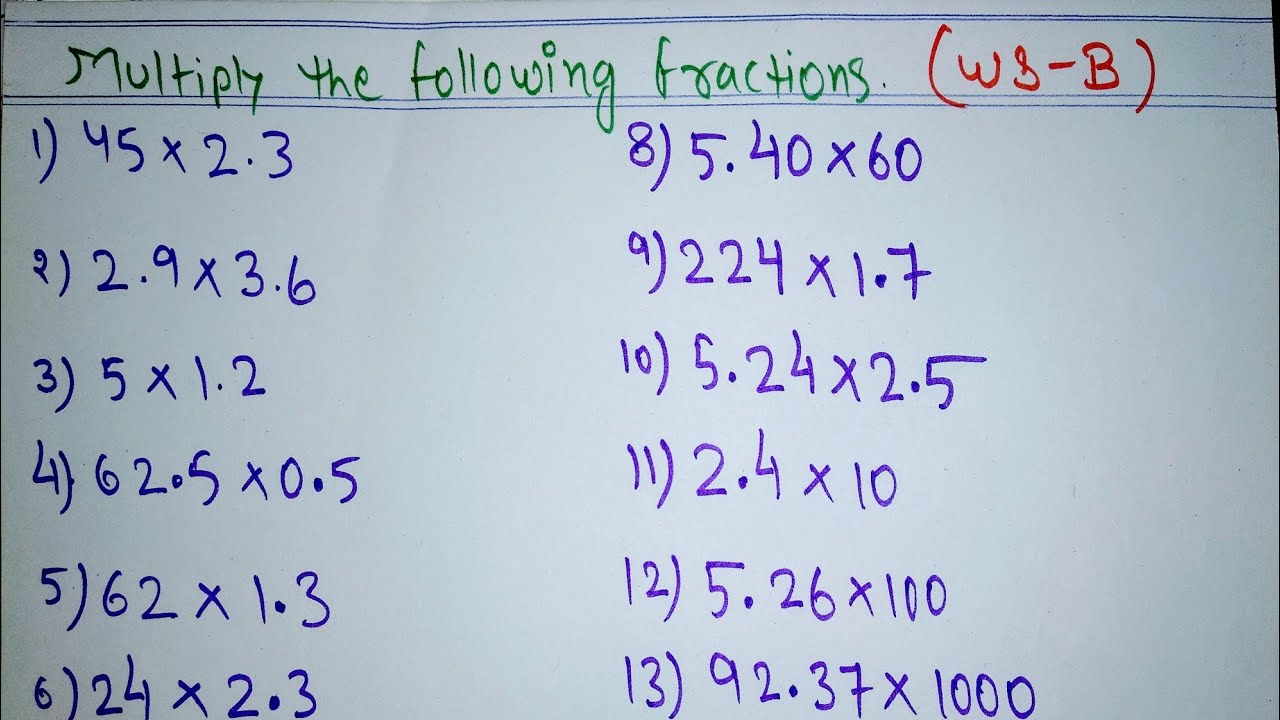 Multiply the following fractions. (WS-B)
1) 45 × 2.3
2) 2.9 × 3.6
3) 5 × 1.2
4) 62.5 × 0.5
5) 62 × 1.3
6) 24 × 2.3
8) 5.40 × 60
9) 224 × 1.7
10) 5.24 × 2.5
11) 2.4 × 10
12) 5.26 × 100
13) 92.37 × 1000